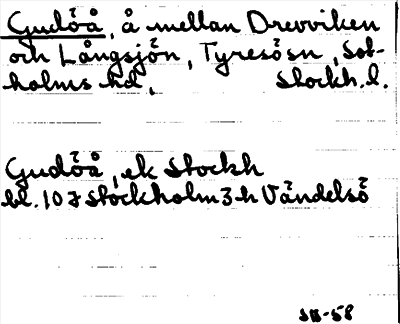 Gudöå, å mellan Drevviken
och Långsjön, Tyresösn, Sot-
holms hd, Stockh.l.
Gudöå, ek Stockh
bl. 10 I Stockholm 3 h Vändelsö
SB-58